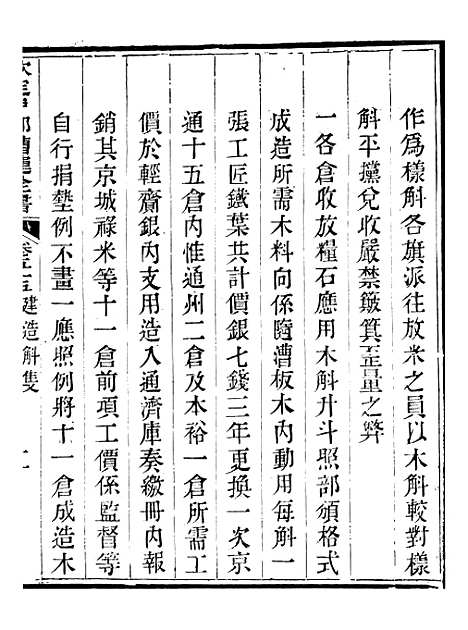 作為樣斛各旗派往放米之員以木斛較對樣
斛平攩兌收嚴禁簸箕歪量之弊
一各倉收放糧石應用木斛升斗照部頒格式
成造所需木料向係隨漕板木內動用每斛一
張工匠鐵葉共計價銀七錢三年更換一次京
通十五倉內惟通州二倉及本裕一倉所需工
價於輕齎銀內支用造入通濟庫奏繳冊內報
銷其京城祿米等十一倉前項工價係監督等
自行捐墊例不畫一應照例將十一倉成造木
欽定戶部漕運全書 建造斛隻